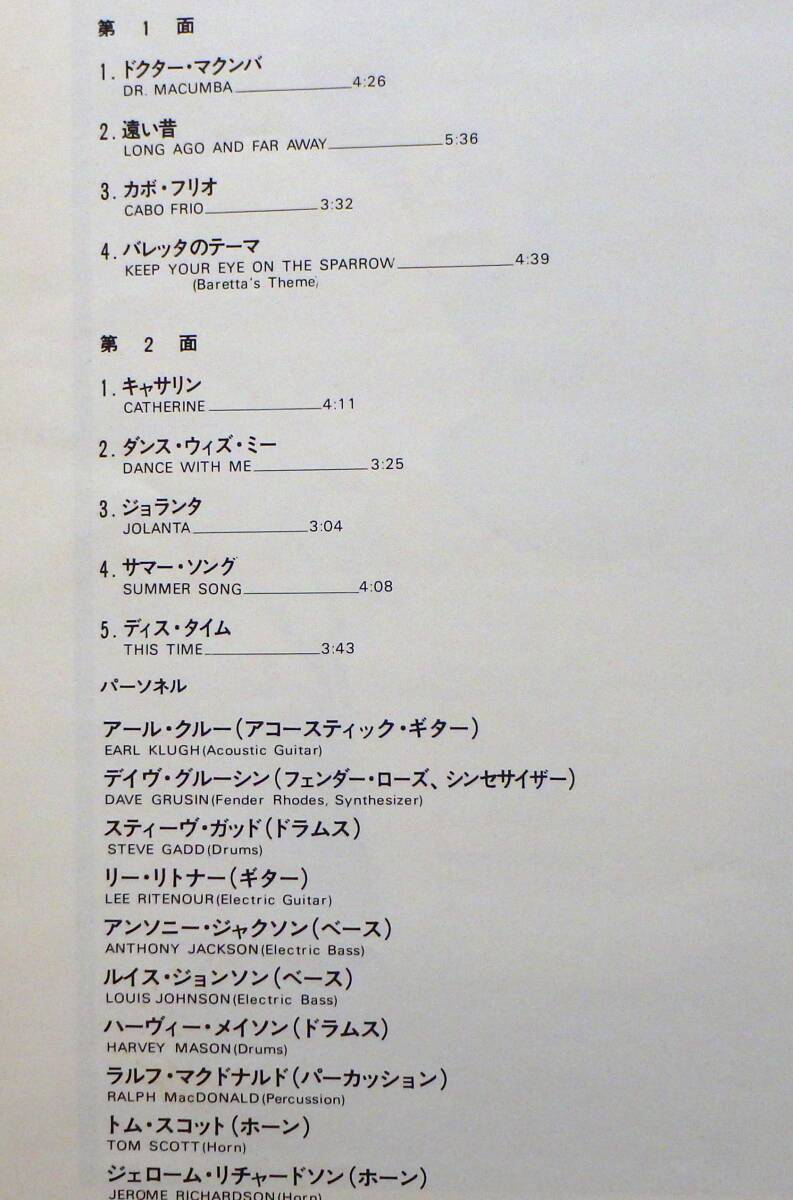 第 1 面
1. ドクター・マクンバ
DR. MACUMBA 4:26
2. 遠い昔
LONG AGO AND FAR AWAY 5:36
3. カボ・フリオ
CABO FRIO 3:32
4. バレッタのテーマ
KEEP YOUR EYE ON THE SPARROW 4:39
(Baretta's Theme)
第 2 面
1. キャサリン
CATHERINE 4:11
2. ダンス・ウィズ・ミー
DANCE WITH ME 3:25
3. ジョランタ
JOLANTA 3:04
4. サマー・ソング
SUMMER SONG 4:08
5. ディス・タイム
THIS TIME 3:43
パーソネル
アール・クルー(アコースティック・ギター)
EARL KLUGH(Acoustic Guitar)
デイヴ・グルーシン(フェンダー・ローズ、シンセサイザー)
DAVE GRUSIN(Fender Rhodes, Synthesizer)
スティーヴ・ガッド(ドラムス)
STEVE GADD(Drums)
リー・リトナー(ギター)
LEE RITENOUR(Electric Guitar)
アンソニー・ジャクソン(ベース)
ANTHONY JACKSON(Electric Bass)
ルイス・ジョンソン(ベース)
LOUIS JOHNSON(Electric Bass)
ハーヴィー・メイソン(ドラムス)
HARVEY MASON(Drums)
ラルフ・マクドナルド(パーカッション)
RALPH MacDONALD(Percussion)
トム・スコット(ホーン)
TOM SCOTT(Horn)
ジェローム・リチャードソン(ホーン)
JEROME RICHARDSON(Horn)